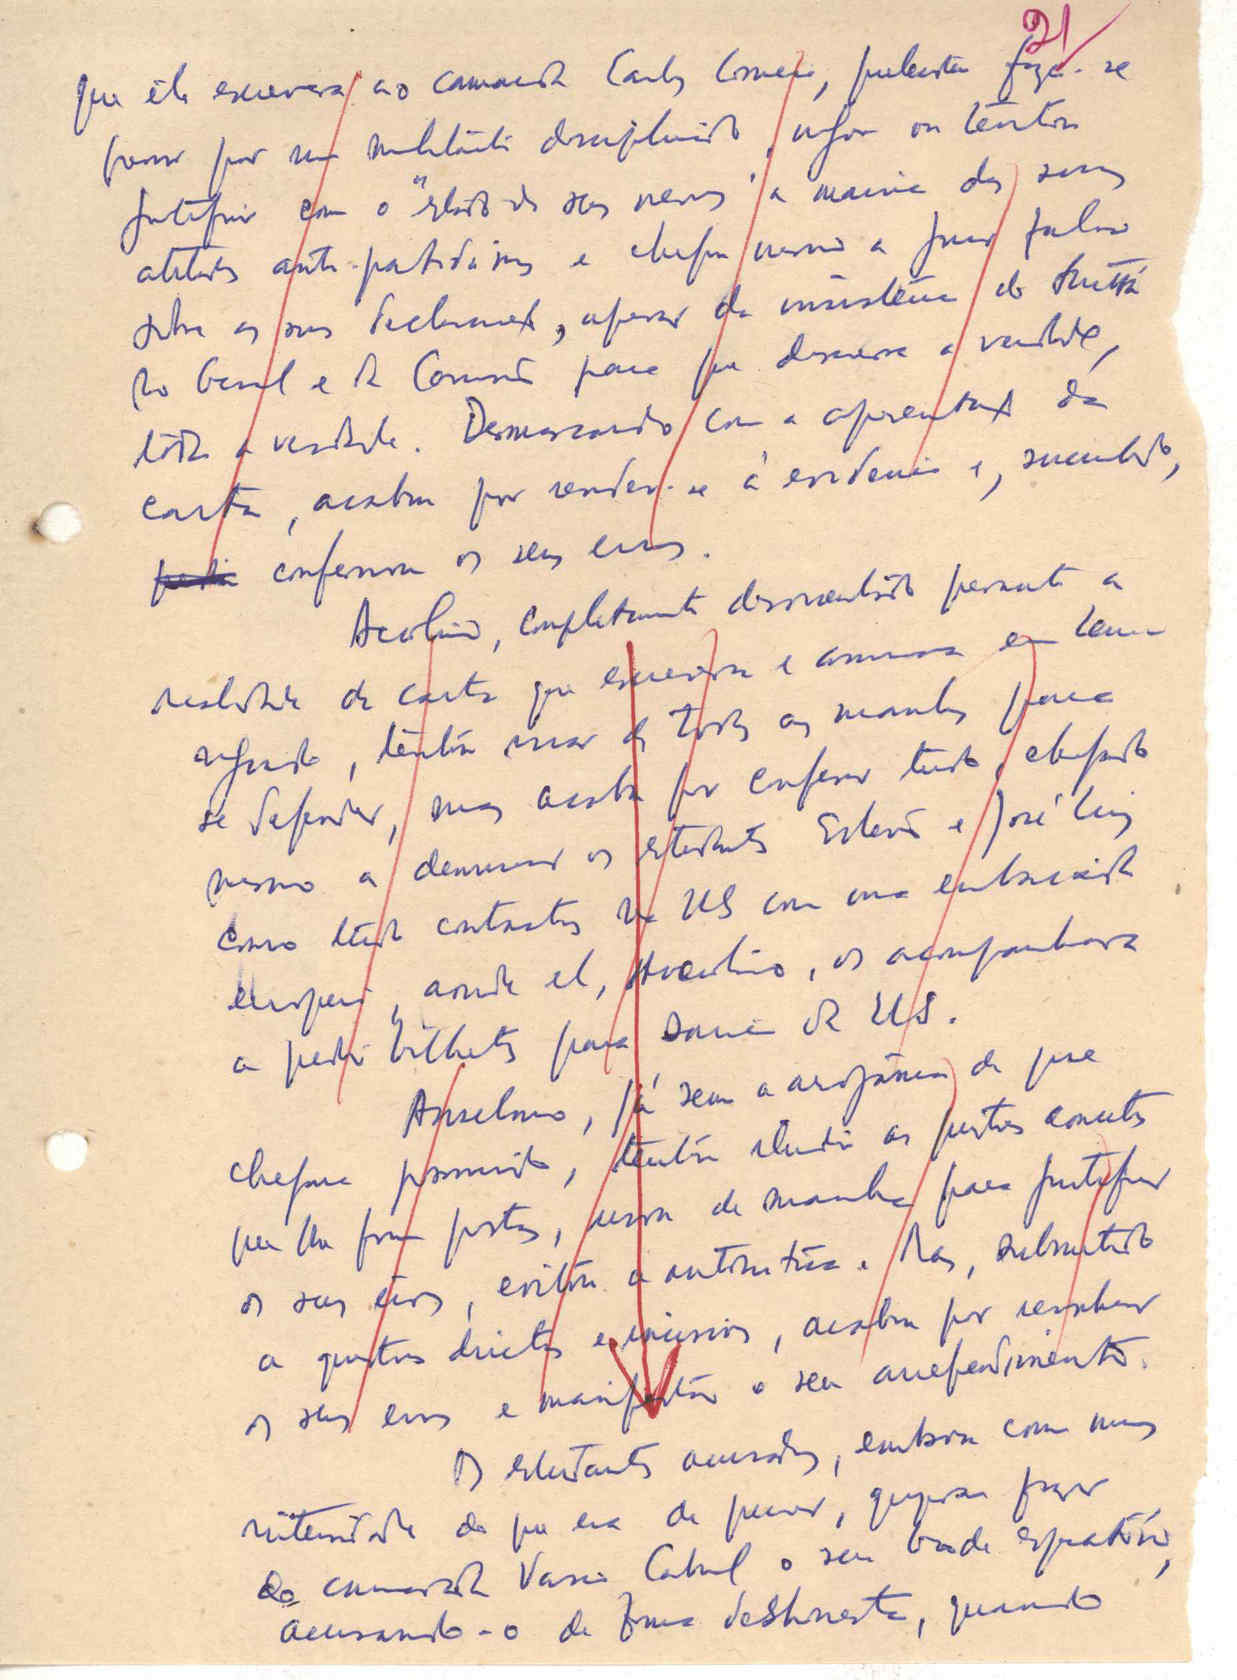 21
que ele escrevera ao camarada Carlos Correia, pretende fazer-se
passar por um militante disciplinado, nega ou tenta
justificar com o "estado dos seus nervos" a maioria das suas
atitudes anti-partidárias e chega mesmo a jurar falso
sobre as suas declarações, apesar da insistência do Secretá-
rio Geral e da Comissão para que dissesse a verdade,
toda a verdade. Desmascarado com a apresentação da
carta, acabou por render-se à evidência e, sucumbido,
confessou os seus erros.
Avelino, completamente desorientado perante a
realidade da carta que escrevera e assinara em
segundo, tentou usar de todas as manhas para
se defender, mas acaba por confessar tudo, chegando
mesmo a denunciar os estudantes Estevão e José Luis
como tendo contactos na US com uma embaixada
europeia, aonde ele, Avelino, os acompanhara
a pedir bilhetes para sair da US.
Anselmo, já sem a arrogância de que
chegara possuído, tentou iludir as questões concretas
que lhe foram postas, usou de manha para justificar
os seus erros, evitou a autocrítica. Mas, submetido
a questões directas e incisivas, acabou por reconhecer
os seus erros e manifestou o seu arrependimento.
Os estudantes acusados, embora com menos
intensidade do que era de pensar, quiseram fazer
do camarada Vasco Cabral o seu bode expiatório,
acusando-o de forma deshonesta, quando